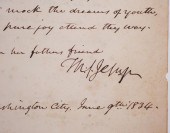 mock the dreams of youth,
pure joy attend thy way.
her fathers friend
Th. S. Jesup
shington City, June 9th 1834.